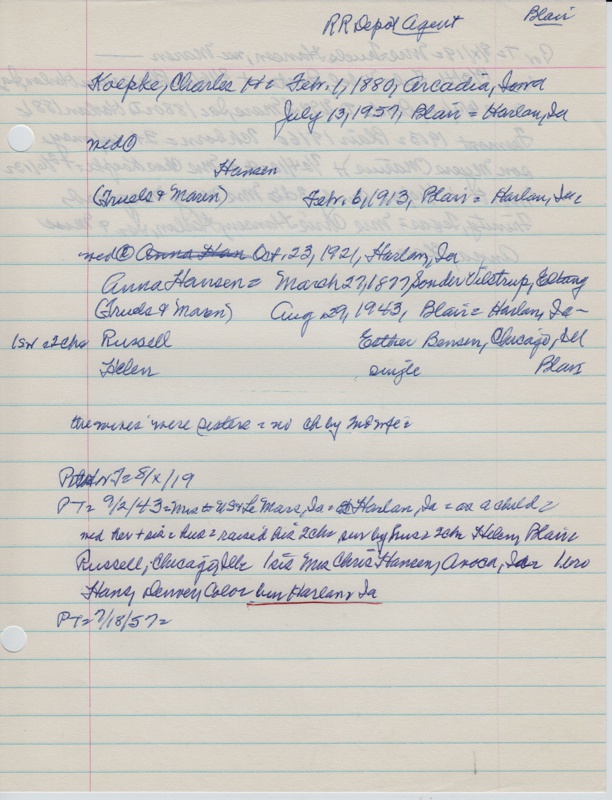 RR Depot Agent
Blair
Koepke, Charles H = Feb. 1, 1880, Arcadia, Iowa
July 13, 1957, Blair = Harlan, Ia
med ①
Hansen
(Truels & Maren) Febr. 6, 1913, Blair = Harlan, Ia =
med ② Anna Han Oct. 23, 1921, Harlan, Ia
Anna Hansen = March 27, 1877, Sonder Vilstrup,
(Truds & Maren) Aug 29, 1943, Blair = Harlan, Ia –
1sw = 2chn Russell Esther Bensen, Chicago, Ill
Helen single Blair
the wives were sisters = no ch by 2nd wife =
PT = 9/2/43 = Le Mars, Ia = Harlan, Ia = as a child =
med her sis = hus = raised his 2chn = sur by hus = 2chn Helen, Blair
Russell, Chicago, Ill = 1 sis Mrs Chris Hansen, Avoca, Ia = 1 bro
Hans, Denver, Color = bur Harlan, Ia
PT = 7/18/57 =